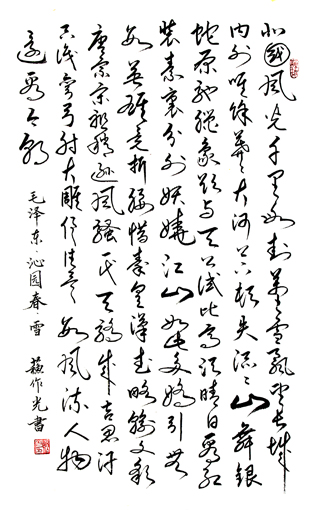 北國风光千里冰封万里雪飘望长城
内外唯馀莽莽大河上下顿失滔滔山舞银
蛇原驰蜡象欲与天公试比高须晴日看红
装素裹分外妖娆江山如此多娇引无
数英雄竞折腰惜秦皇汉武略输文采
唐宗宋祖稍逊风骚一代天骄成吉思汗
只识弯弓射大雕俱往矣数风流人物
还看今朝
毛泽东·沁园春·雪 蘇作光書